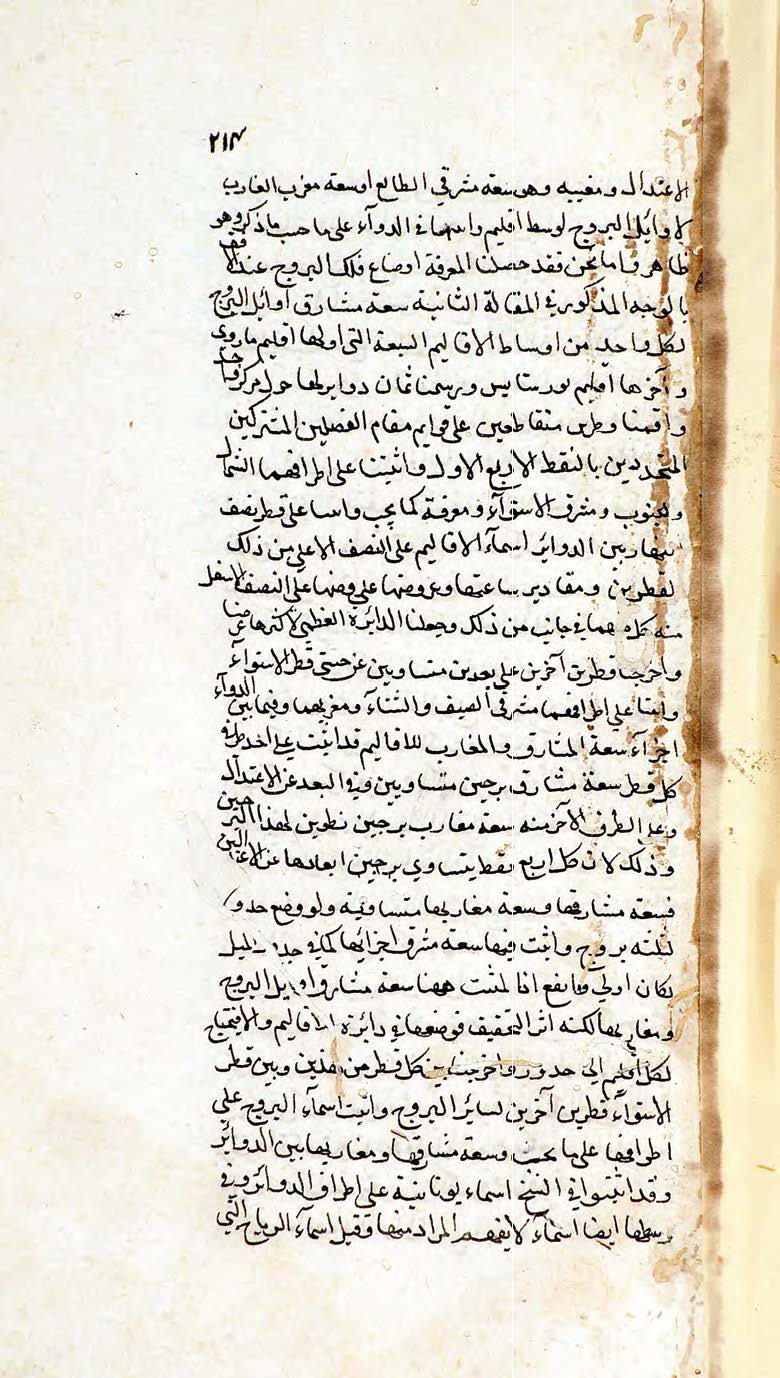 ٢١٣
الاعتدال ومغيبه وهو سعة مشرقي الطالع او سعة مغرب الغارب
لاوايل البروج لوسط اقليم واسما في الدوآء على ما حسب ما ذكر وهو
ظاهر واما نحن فقد حصلنا لمعرفة اوضاع فلك البروج عند الافق
بالوجه المذكور في المقالة الثانية سعة مشارق اوآئل البروج
لكل واحد من اوساط الاقاليم السبعة التى اولها اقليم ماروى
وآخرها اقليم بورستانيس ورسمنا ثمان دواير لها حول مركز واحد
واقمنا قطرين متقاطعين على قوايم مقام الفصلين المشتركين
المتحددين بالنقط الاربع الاول واثبتنا على اطرافهما الشمال
والجنوب ومشرق الاستوآء ومغربه كما يجب واسا على قطر نصف
النهار بين الدوائر اسمآء الاقاليم على النصف الاعلى من ذلك
لقطرين ومقادير ساعتها وعروضها على النصف الاسفل
منه كلاهما في جانب من ذلك وجعلنا الدائرة العظمى لاكثرها عرضا
واخرجنا قطرين آخرين على بعدين متساويين عن جنبتى قطر الاستوآء
واثبتنا على اطرافهما مشرقى الصيف والشتآء ومغربهما وفيما بين الدوآئر
اجزآء سعة المشارق والمغارب للاقاليم قد اثبت على احد طرفى
كل قطر سعة مشارق برجين متساويين في البعد عن الاعتدال
وعلى الطرف الآخر منه سعة مغارب برجين نظيرين لهذا البرجين
وذلك لان كل اربع نقط يتساوى برجين ابعادها عن الاعتدالين
فسعة مشارقها وسعة مغاربها متساوية ولو وضع حدول
لثلثة بروج واثبت فيها سعة مشرق اجزائها كما في جدول الميل
لكان اولى وانفع اذا لمثبت ههنا سعة مشارق اوايل البروج
ومغاربها لكنه اثر التخفيف فوضعها في دائرة الاقاليم والا فيحتاج
لكل اقليم الى جدول واخرجنا بين كل قطر من هذين وبين قطر
الاستوآء قطرين آخرين لساير البروج واثبت اسمآء البروج على
اطرافها على ما يجب وسعة مشارقها ومغاربها بين الدوائر
وقد اثبتوا في النسخ اسماء يونانية على اطراف الدوائر وفى
وسطها ايضا اسمآء لا يفهم المراد منها فقيل اسمآء الرياح التى